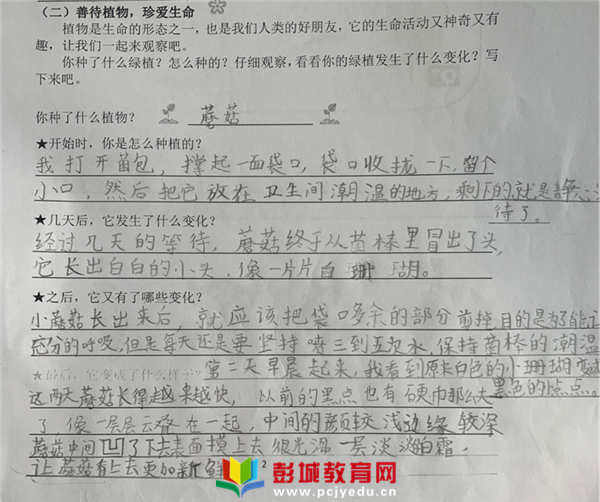 （二）善待植物，珍爱生命
植物是生命的形态之一，也是我们人类的好朋友，它的生命活动又神奇又有
趣，让我们一起来观察吧。
你种了什么绿植？怎么种的？仔细观察，看看你的绿植发生了什么变化？写
下来吧。
你种了什么植物？ 蘑菇
★开始时，你是怎么种植的？
我打开菌包，撑起一面袋口，袋口收拢一下，留个
小口，然后把它放在卫生间潮温的地方，剩下的就是静心等
待了。
★几天后，它发生了什么变化？
经过几天的等待，蘑菇终于从菌棒里冒出了头，
它长出白白的小头，像一片片白珊瑚。
★之后，它又有了哪些变化？
小蘑菇长出来后，就应该把袋口多余的部分剪掉，目的是好能
充分的呼吸，但是每天还是要坚持喷三到五次水，保持菌棒的潮温
★最后，它变成了什么样子？
第二天早晨起来，我看到原来白色的小珊瑚变成
黑色的点点。
这两天蘑菇长得越来越快，以前的黑点也有硬币那么大
了，像一层层云叠在一起，中间的颜较浅边缘较深
蘑菇中间凹了下去表面摸上去很光温一层淡淡白霜。
让蘑菇看上去更加新鲜
2
彭城教育网
www.pcjyedu.cn